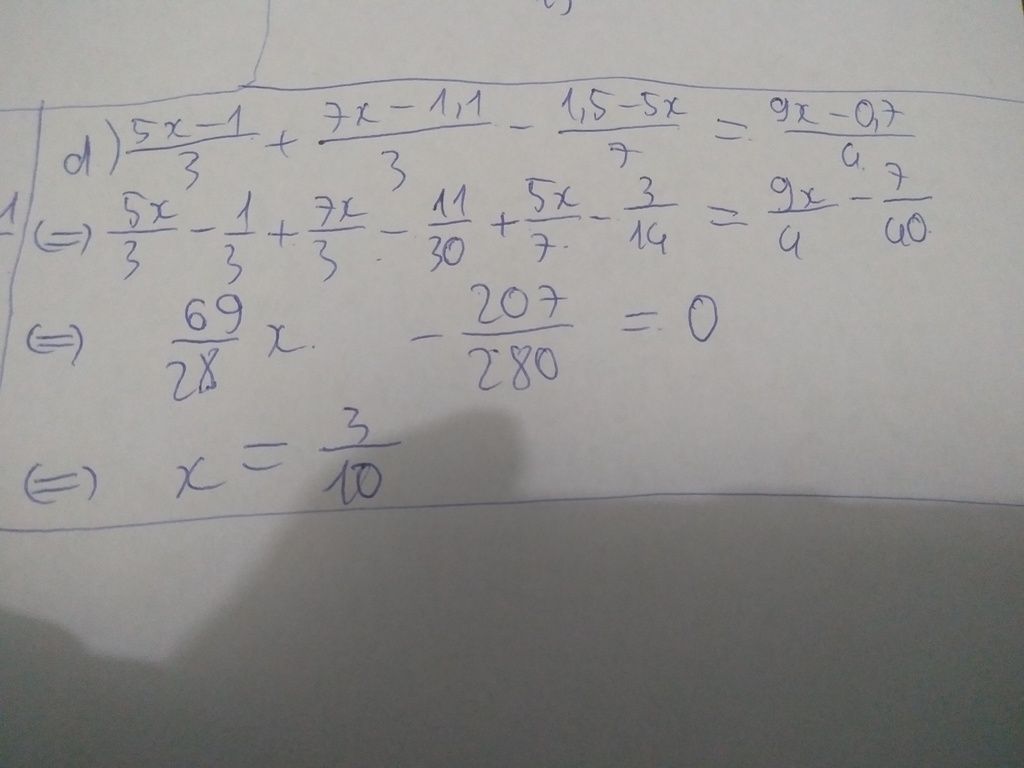 d) (5x-1)/3 + (7x-1,1)/3 - (1,5-5x)/7 = (9x-0,7)/4
1 (=) 5x/3 - 1/3 + 7x/3 - 11/30 + 5x/7 - 3/14 = 9x/4 - 7/40
(=) 69/28 x - 207/280 = 0
(=) x = 3/10